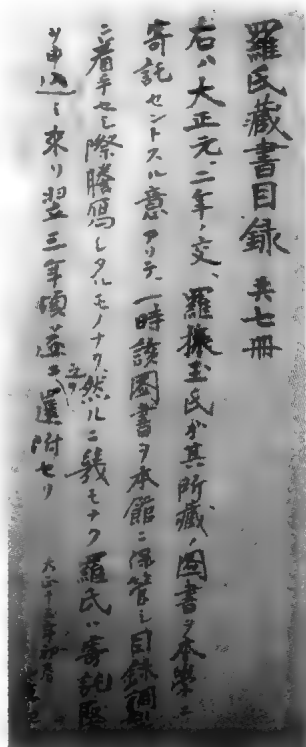 羅氏藏書目録 共七冊
右ハ大正元、二年ノ交、羅振玉氏ガ其所藏ノ圖書ヲ本學ニ
寄託セントスル意アリテ、一時該圖書ヲ本館ニ保管シ目録調製
ニ着手セシ際謄寫シタルモノナリ然ルニ幾モナク羅氏ハ寄託
ヲ申込ミ来リ翌三年頃 還附セリ
大正十五年初春